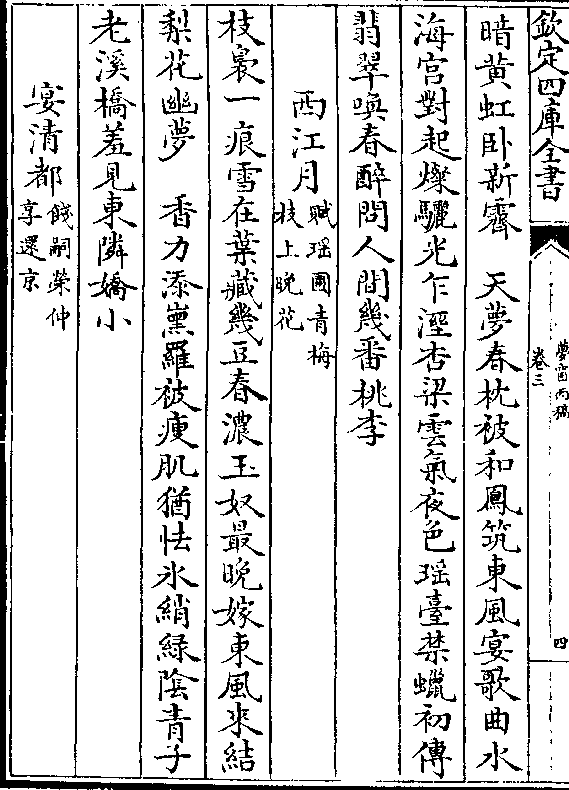 欽定四庫全書
夢窗丙稿
卷三
四
暗黄虹卧新霽　天夢春枕被和鳳筑東風宴歌曲水
海宫對起燦驪光乍溼杏梁雲氣夜色瑶臺禁蠟初傳
翡翠喚春醉問人間幾番桃李
西江月 賦瑶圃青梅
枝上晚花
枝裊一痕雪在葉藏幾豆春濃玉奴最晚嫁東風來結
梨花幽夢　香力添熏羅被瘦肌猶怯氷綃緑陰青子
老溪橋羞見東隣嬌小
宴清都 餞嗣榮仲
享還京